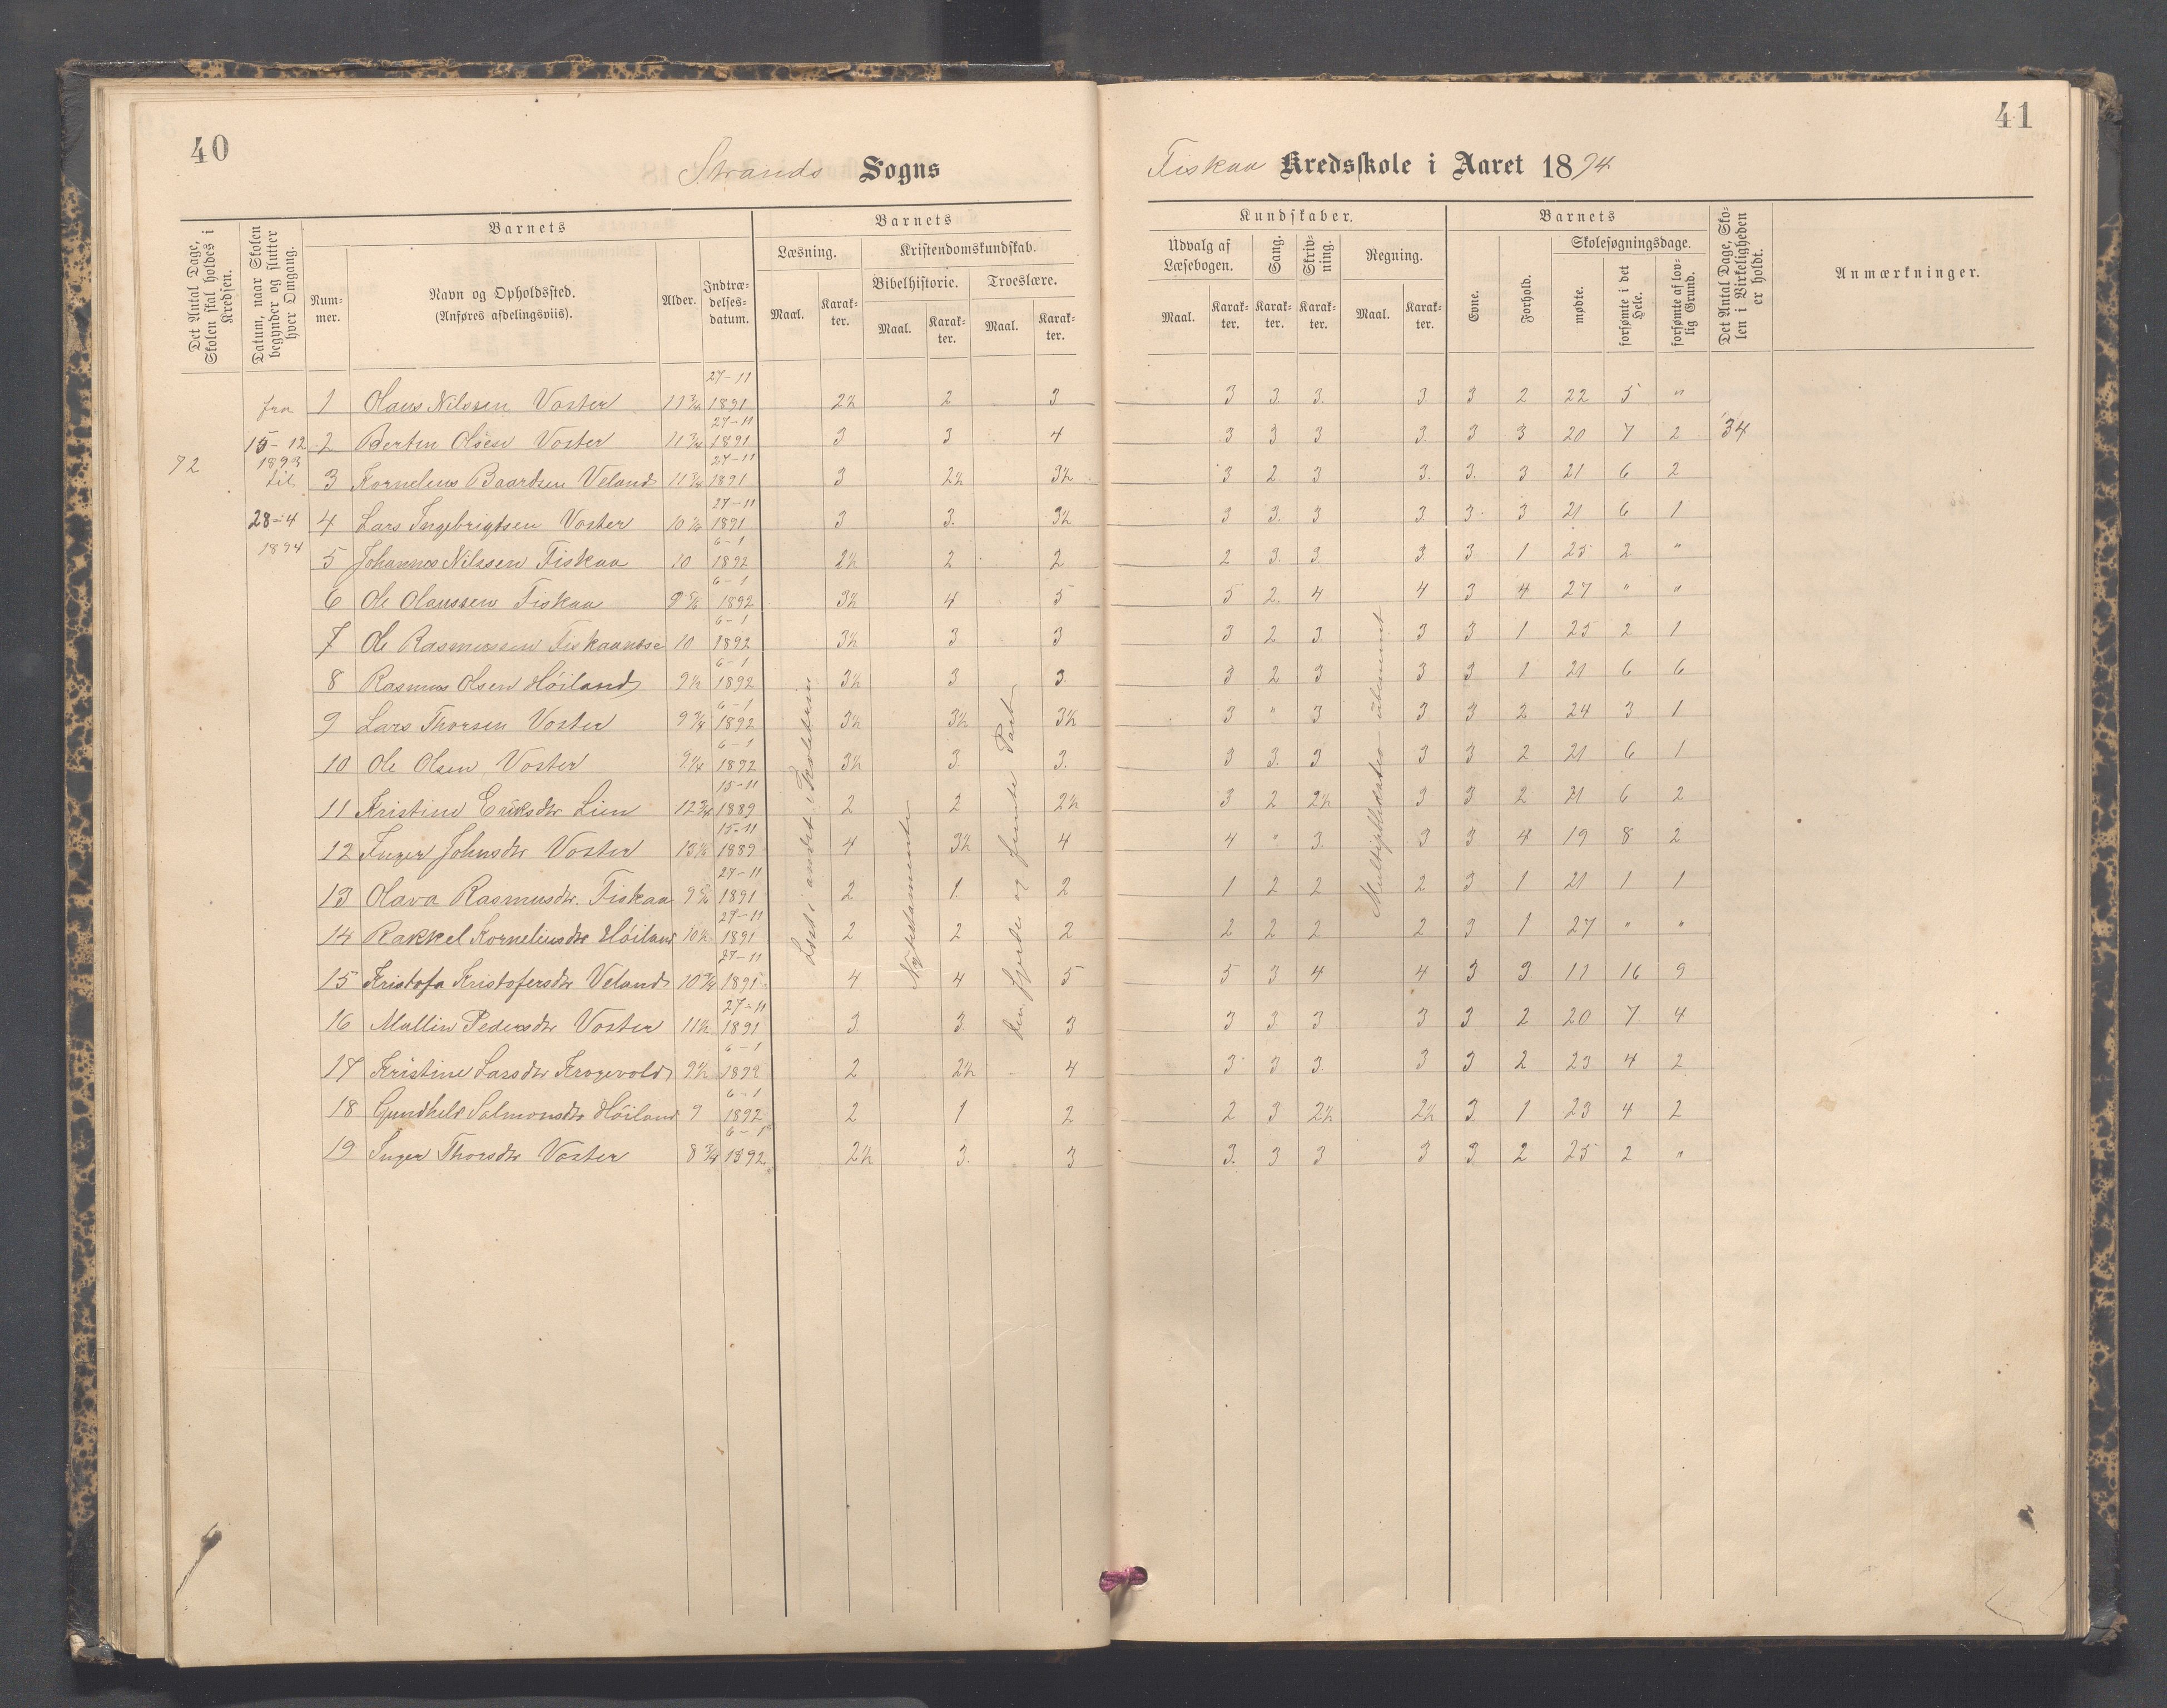 40
41
Strands Sogns
Fiskaa Kredsskole i Aaret 1894
Det Antal Dage, Skolen skal holdes i Kredsen.
Datum, naar Skolen begynder og slutter hver Omgang.
Barnets
Nummer.
Navn og Opholdssted. (Anføres afdelingsviis).
Alder.
Indtrædelsesdatum.
Barnets
Læsning.
Kristendomskundskab.
Bibelhistorie.
Troeslære.
Maal.
Karakter.
Maal.
Karakter.
Maal.
Karakter.
Kundskaber.
Udvalg af Læsebogen.
Sang.
Skrivning.
Regning.
Maal.
Karakter.
Karakter.
Karakter.
Maal.
Karakter.
Barnets
Evne.
Forhold.
Skolesøgningsdage.
mødte.
forsømte i det Hele.
forsømte af lovlig Grund.
Det Antal Dage, Skolen i Virkeligheden er holdt.
Anmærkninger.
72
fra 15-12 1893 til 28-4 1894
34
1 Olaus Nilssen Voster 11 3/4 27-11 1891 2½ 2 3 3 3 3 3 3 2 22 5 "
2 Bertin Olsen Voster 11 3/4 27-11 1891 3 3 4 3 3 3 3 3 3 20 7 2
3 Kornelius Baardsen Veland 11 3/4 27-11 1891 3 2½ 3½ 3 2 3 3 3 3 21 6 2
4 Lars Ingebrigtsen Voster 10 27-11 1891 3 3 3½ 3 3 3 3 3 3 21 6 1
5 Johannes Nilssen Fiskaa 10 6-1 1892 2½ 2 2 2 3 3 3 3 1 25 2 "
6 Ole Olaussen Fiskaa 6-1 1892 3½ 4 5 5 2 4 4 3 4 27 " "
7 Ole Rasmussen Fiskaanese 10 6-1 1892 3½ 3 3 3 2 3 3 3 1 25 2 1
8 Rasmus Olsen Høiland 9½ 6-1 1892 3½ 3 3 3 2 3 3 3 1 21 6 6
9 Lars Thorsen Voster 9 3/4 6-1 1892 3½ 3½ 3½ 3 " 3 3 3 2 24 3 1
10 Ole Olsen Voster 9¼ 6-1 1892 3½ 3 3 3 3 3 3 3 2 21 6 1
11 Kristine Eriksdtr Lien 12 3/4 15-11 1889 2 2 2½ 3 2 2½ 3 3 2 21 6 2
12 Inger Johnsdtr Voster 13 15-11 1889 4 3½ 4 4 " 3 3 3 4 19 8 2
13 Olava Rasmusdtr. Fiskaa 9 27-11 1891 2 1 2 1 2 2 2 3 1 21 1 1
14 Rakkel Korneliusdtr Høiland 10½ 27-11 1891 2 2 2 2 2 2 2 3 1 27 " "
15 Kristofa Kristofersdtr Veland 10 3/4 27-11 1891 4 4 5 5 3 4 4 3 3 11 16 9
16 Mallin Pedersdtr Voster 11½ 27-11 1891 3 3 3 3 3 3 3 3 2 20 7 4
17 Kristine Larsdtr Krogevold 9½ 6-1 1892 2 2½ 4 3 3 3 3 3 2 23 4 2
18 Gundhild Salmonsdtr Høiland 9 6-1 1892 2 1 2 2 3 2½ 2½ 3 1 23 4 2
19 Inger Thorsdtr Voster 8 3/4 6-1 1892 2½ 3 3 3 3 3 3 3 2 25 2 "
Læst i andet
Nytestamente
den fjerde og femte Part
Multiplikation ubenævnt